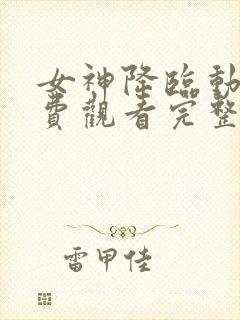 女神降臨動
費觀看完整
雷甲佳